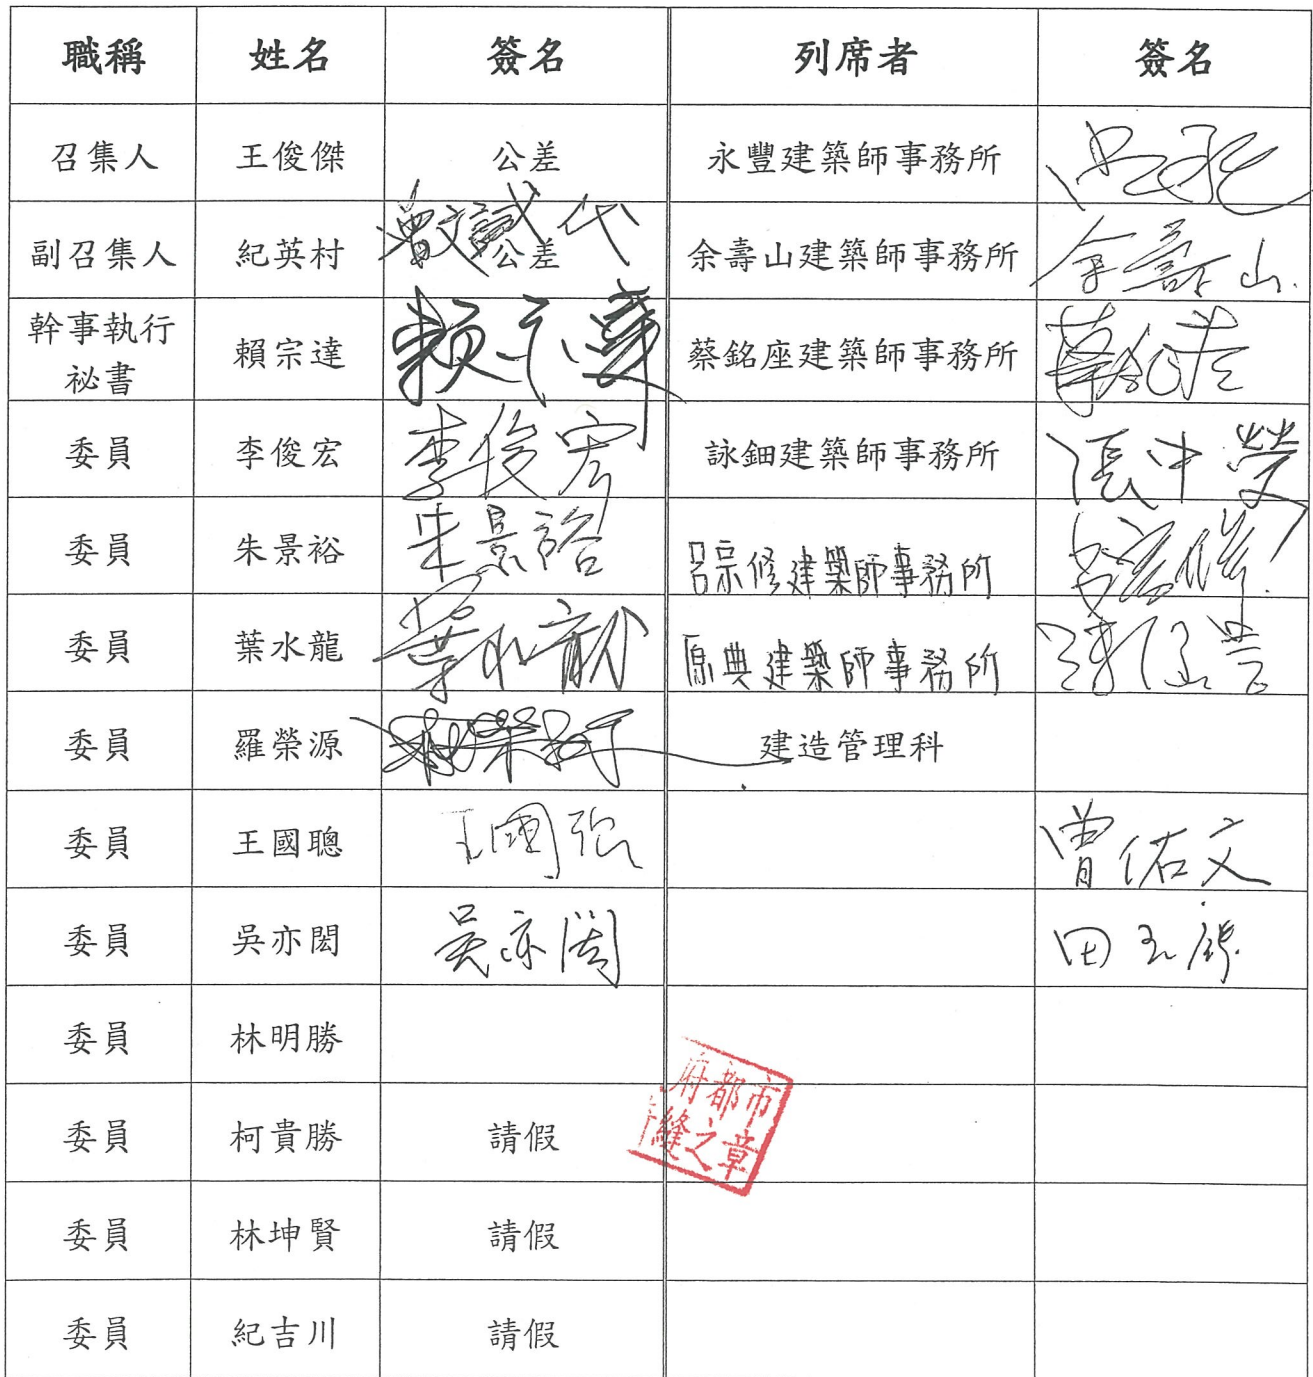 職稱 姓名 簽名 列席者 簽名
召集人 王俊傑 公差 永豐建築師事務所
副召集人 紀英村 公差 代 余壽山建築師事務所 余壽山
幹事執行
祕書 賴宗達 賴宗達 蔡銘座建築師事務所
委員 李俊宏 李俊宏 詠鈿建築師事務所 張中榮
委員 朱景裕 朱景裕 呂宗修建築師事務所
委員 葉水龍 葉水龍 原典建築師事務所
委員 羅榮源 建造管理科
委員 王國聰 曾佑文
委員 吳亦閎 吳亦閎
委員 林明勝
府都市
縫之章
委員 柯貴勝 請假
委員 林坤賢 請假
委員 紀吉川 請假